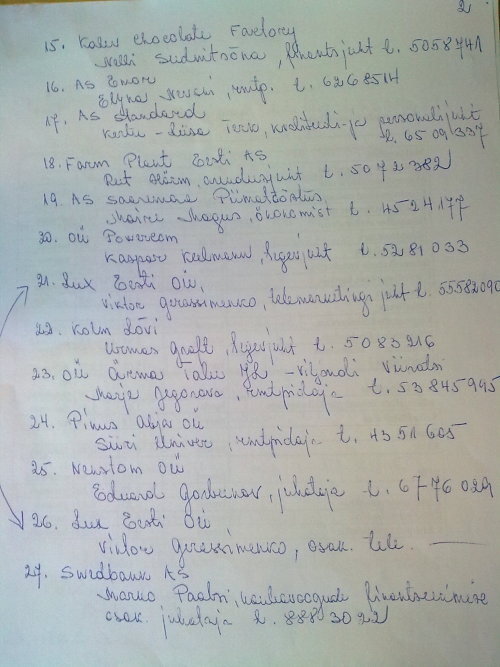 2
15. Kalev Chocolate Factory
Nelli Sudnitsõna, finantsjuht t. 5058741
16. AS Emor
rmtp. t. 6268514
17. AS Standard
Kertu-Liisa krediidi-ja personalijuht
t. 6509337
18. Farm Plant Eesti AS
Rut arendusjuht t. 5072382
19. AS Saaremaa Piimatööstus,
Maire Magus, ökonomist t. 4524177
20. OÜ Powercom
Kaspar Keelmann, tegevjuht t. 5281033
21. Lux Eesti OÜ,
Viktor Gerassimenko, telemarketingi juht t. 55582090
22. Kolm Lõvi
Urmas tegevjuht t. 5083216
23. OÜ Ärma Talu - Viljandi Viiratsi
Maija Jegorova, rmtpidaja t. 53845945
24. Pinus Abja OÜ
Siiri rmtpidaja t. 4351665
25. OÜ
Eduard Gorbunov, juhataja t. 6776029
26. Lux Eesti OÜ,
Viktor Gerassimenko, osak. tele.
27. Swedbank AS
Marko finantseerimise
osak. juhataja t. 8883022